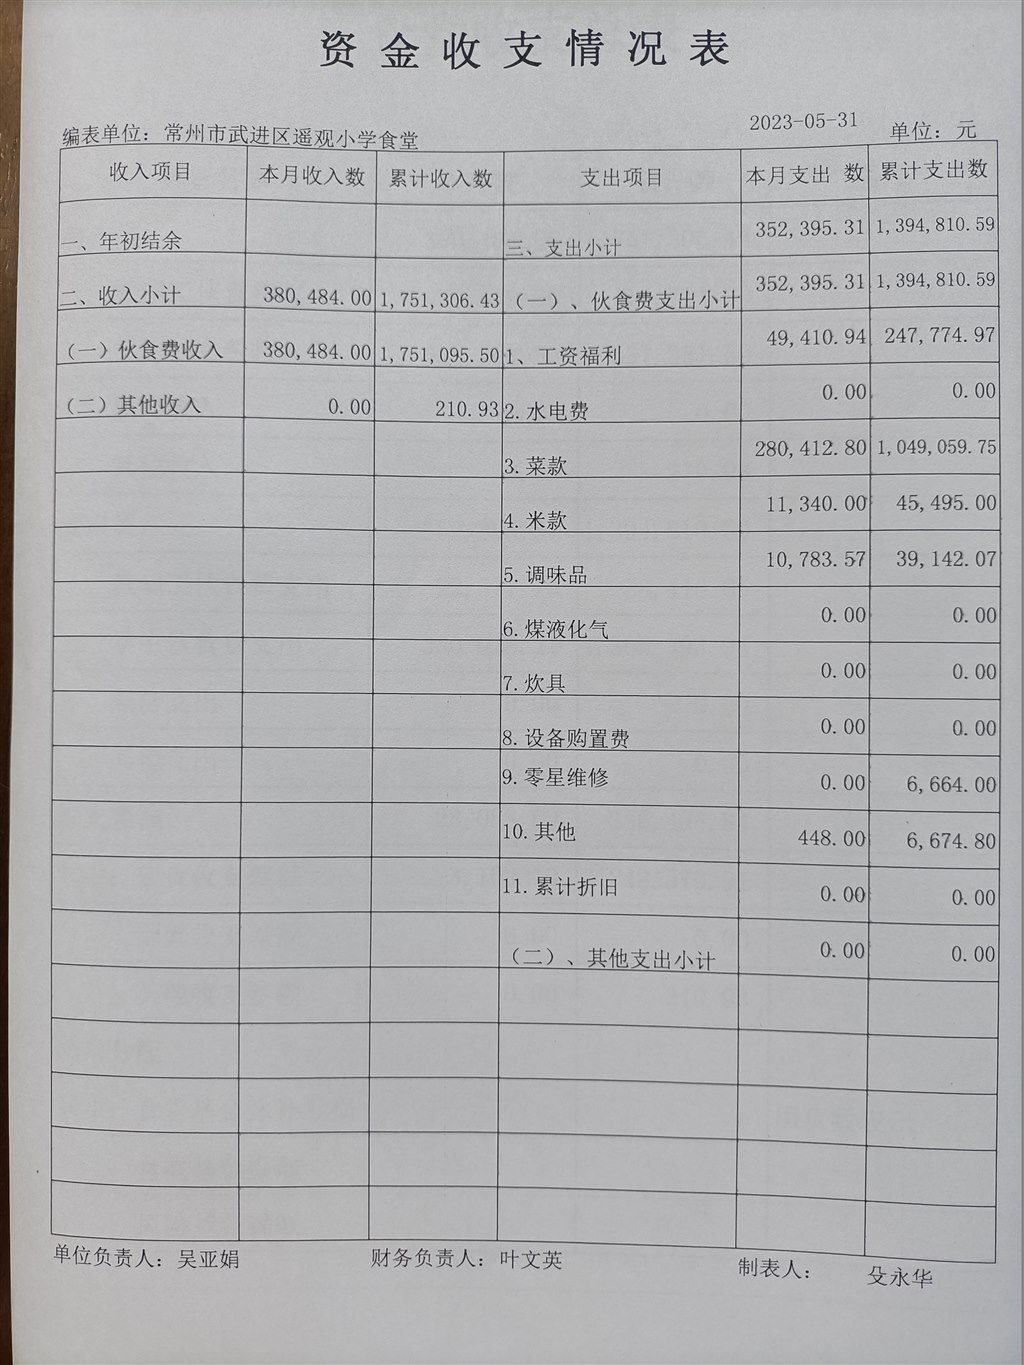 资金收支情况表
编表单位：常州市武进区遥观小学食堂 2023-05-31 单位：元
收入项目 本月收入数 累计收入数 支出项目 本月支出 数 累计支出数
一、年初结余 三、支出小计 352,395.31 1,394,810.59
二、收入小计 380,484.00 1,751,306.43 （一）、伙食费支出小计 352,395.31 1,394,810.59
（一）伙食费收入 380,484.00 1,751,095.50 1、工资福利 49,410.94 247,774.97
（二）其他收入 0.00 210.93 2.水电费 0.00 0.00
3.菜款 280,412.80 1,049,059.75
4.米款 11,340.00 45,495.00
5.调味品 10,783.57 39,142.07
6.煤液化气 0.00 0.00
7.炊具 0.00 0.00
8.设备购置费 0.00 0.00
9.零星维修 0.00 6,664.00
10.其他 448.00 6,674.80
11.累计折旧 0.00 0.00
（二）、其他支出小计 0.00 0.00
单位负责人：吴亚娟 财务负责人：叶文英 制表人： 殳永华